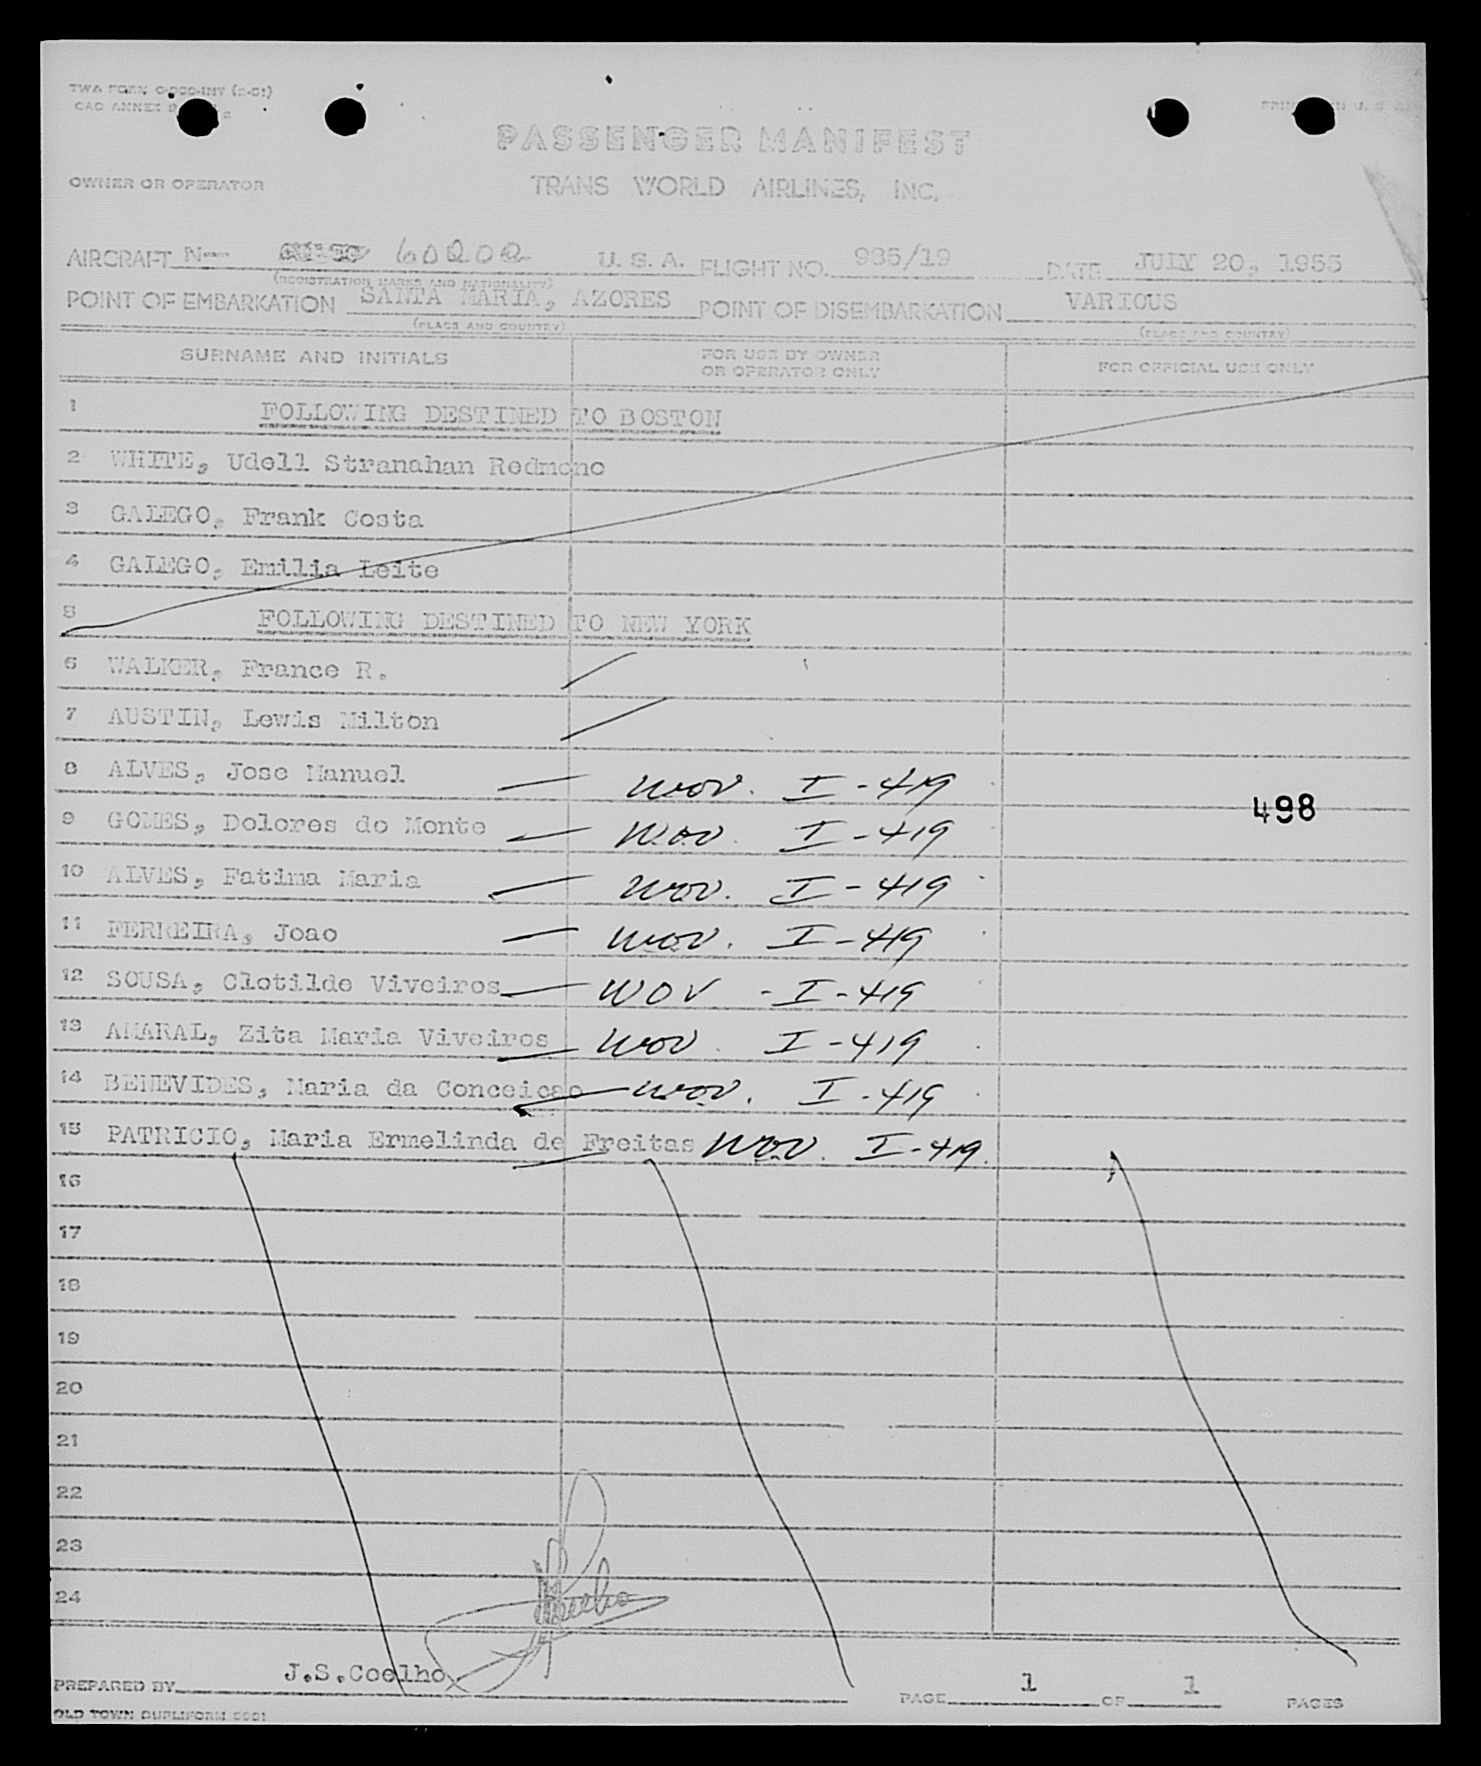 TWA FORM
CAO ANNEX
PRINTED IN U. S. A.
PASSENGER MANIFEST
OWNER OR OPERATOR
TRANS WORLD AIRLINES, INC.
AIRCRAFT N U. S. A. FLIGHT NO. 985/19 DATE JULY 20, 1955
(REGISTRATION MARKS AND NATIONALITY)
POINT OF EMBARKATION SANTA MARIA, AZORES POINT OF DISEMBARKATION VARIOUS
(PLACE AND COUNTRY) (PLACE AND COUNTRY)
SURNAME AND INITIALS FOR USE BY OWNER OR OPERATOR ONLY FOR OFFICIAL USE ONLY
1 FOLLOWING DESTINED TO BOSTON
2 WHITE, Udell Stranahan Redmond
3 GALEGO, Frank Costa
4 GALEGO, Emilia Leite
5 FOLLOWING DESTINED TO NEW YORK
6 WALKER, France R.
7 AUSTIN, Lewis Milton
8 ALVES, Jose Manuel wov. I-419
498
9 GOMES, Dolores do Monte wov. I-419
10 ALVES, Fatima Maria wov. I-419
11 FERREIRA, Joao wov. I-419
12 SOUSA, Clotilde Viveiros WOV - I-419
13 AMARAL, Zita Maria Viveiros wov I-419
14 BENEVIDES, Maria da Conceicao wov. I-419
15 PATRICIO, Maria Ermelinda de Freitas wov. I-419.
16
17
18
19
20
21
22
23
24
PREPARED BY J.S.Coelho PAGE 1 OF 1 PAGES
OLD TOWN DUPLIFORM